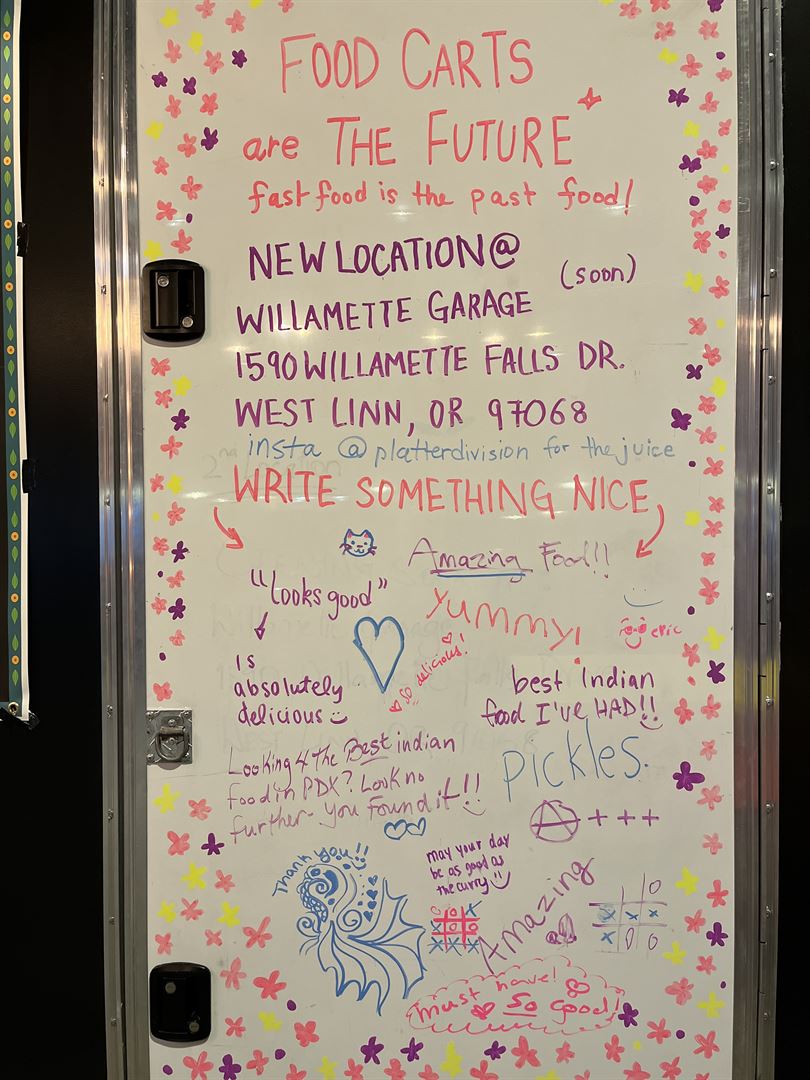 FOOD CARTS
are THE FUTURE
fast food is the past food!
NEW LOCATION@
(soon)
WILLAMETTE GARAGE
1590 WILLAMETTE FALLS DR.
WEST LINN, OR 97068
insta @platterdivision for the juice
2nd Location
WRITE SOMETHING NICE
Amazing Food!!
"Looks good"
Yummy!
eric
is
absolutely
delicious
so delicious!
best Indian
food I've HAD!!
Looking 4 the Best indian
food in PDX? Look no
further- you found it!!
Pickles.
A+++
Thank you!!
may your day
be as good as
the curry
Amazing
O
X X X
X O O
O O X
X O O
X X X
must have!
So Good!